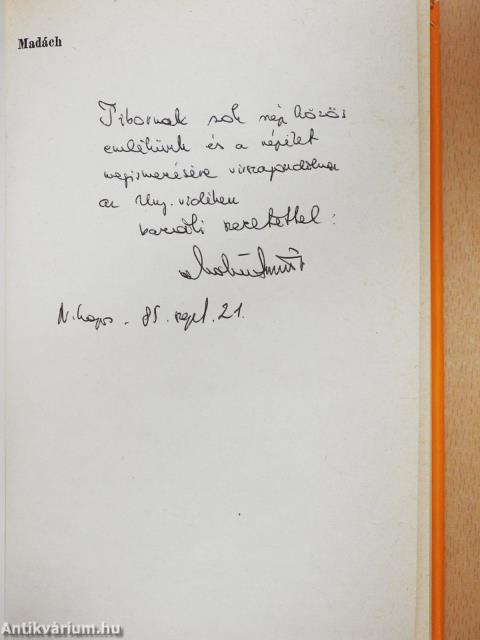 Madách
Tibornak sok szép közös
emlékünk és a népélet
megismerésére visszagondolva
az Ung-vidéken
baráti szeretettel:
N. Kapos. 85. szept. 21.
Antikvárium.hu